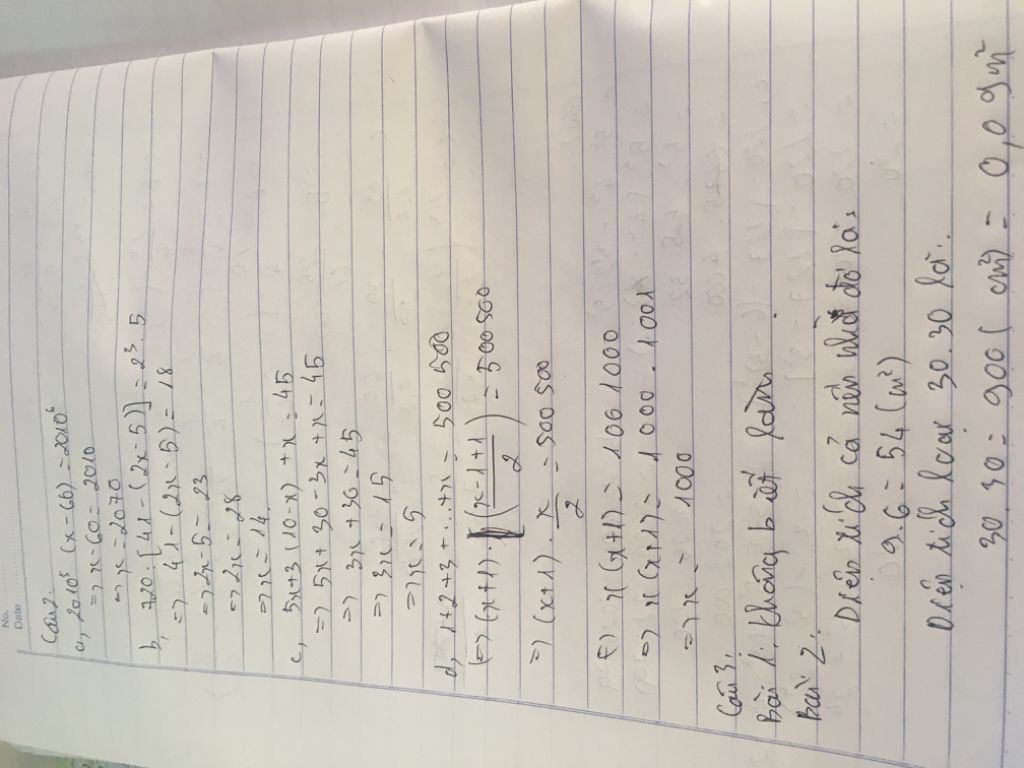 No.
Date
Câu 2.
a, 2010⁵ (x-60) = 2010⁶
=> x-60 = 2010
=> x = 2070
b, 720 : [41 - (2x-5)] = 2³. 5
=> 41 - (2x-5) = 18
=> 2x-5 = 23
=> 2x = 28
=> x = 14
c, 5x+3(10-x) + x = 45
=> 5x + 30 - 3x + x = 45
=> 3x + 30 = 45
=> 3x = 15
=> x = 5
d, 1+2+3+...+x = 500 500
(=> (x+1). (x-1+1)/2 = 500 500
=> (x+1). x/2 = 500 500
(=) x(x+1) = 100 1000
=> x(x+1) = 1000. 1001
=> x = 1000
Câu 3.
Bài 1. Không biết làm.
Bài 2.
Diện tích cả nền nhà đó là:
9.6 = 54 (m²)
Diện tích loại 30.30 là:
30.30 = 900 (cm²) = 0,09 m²